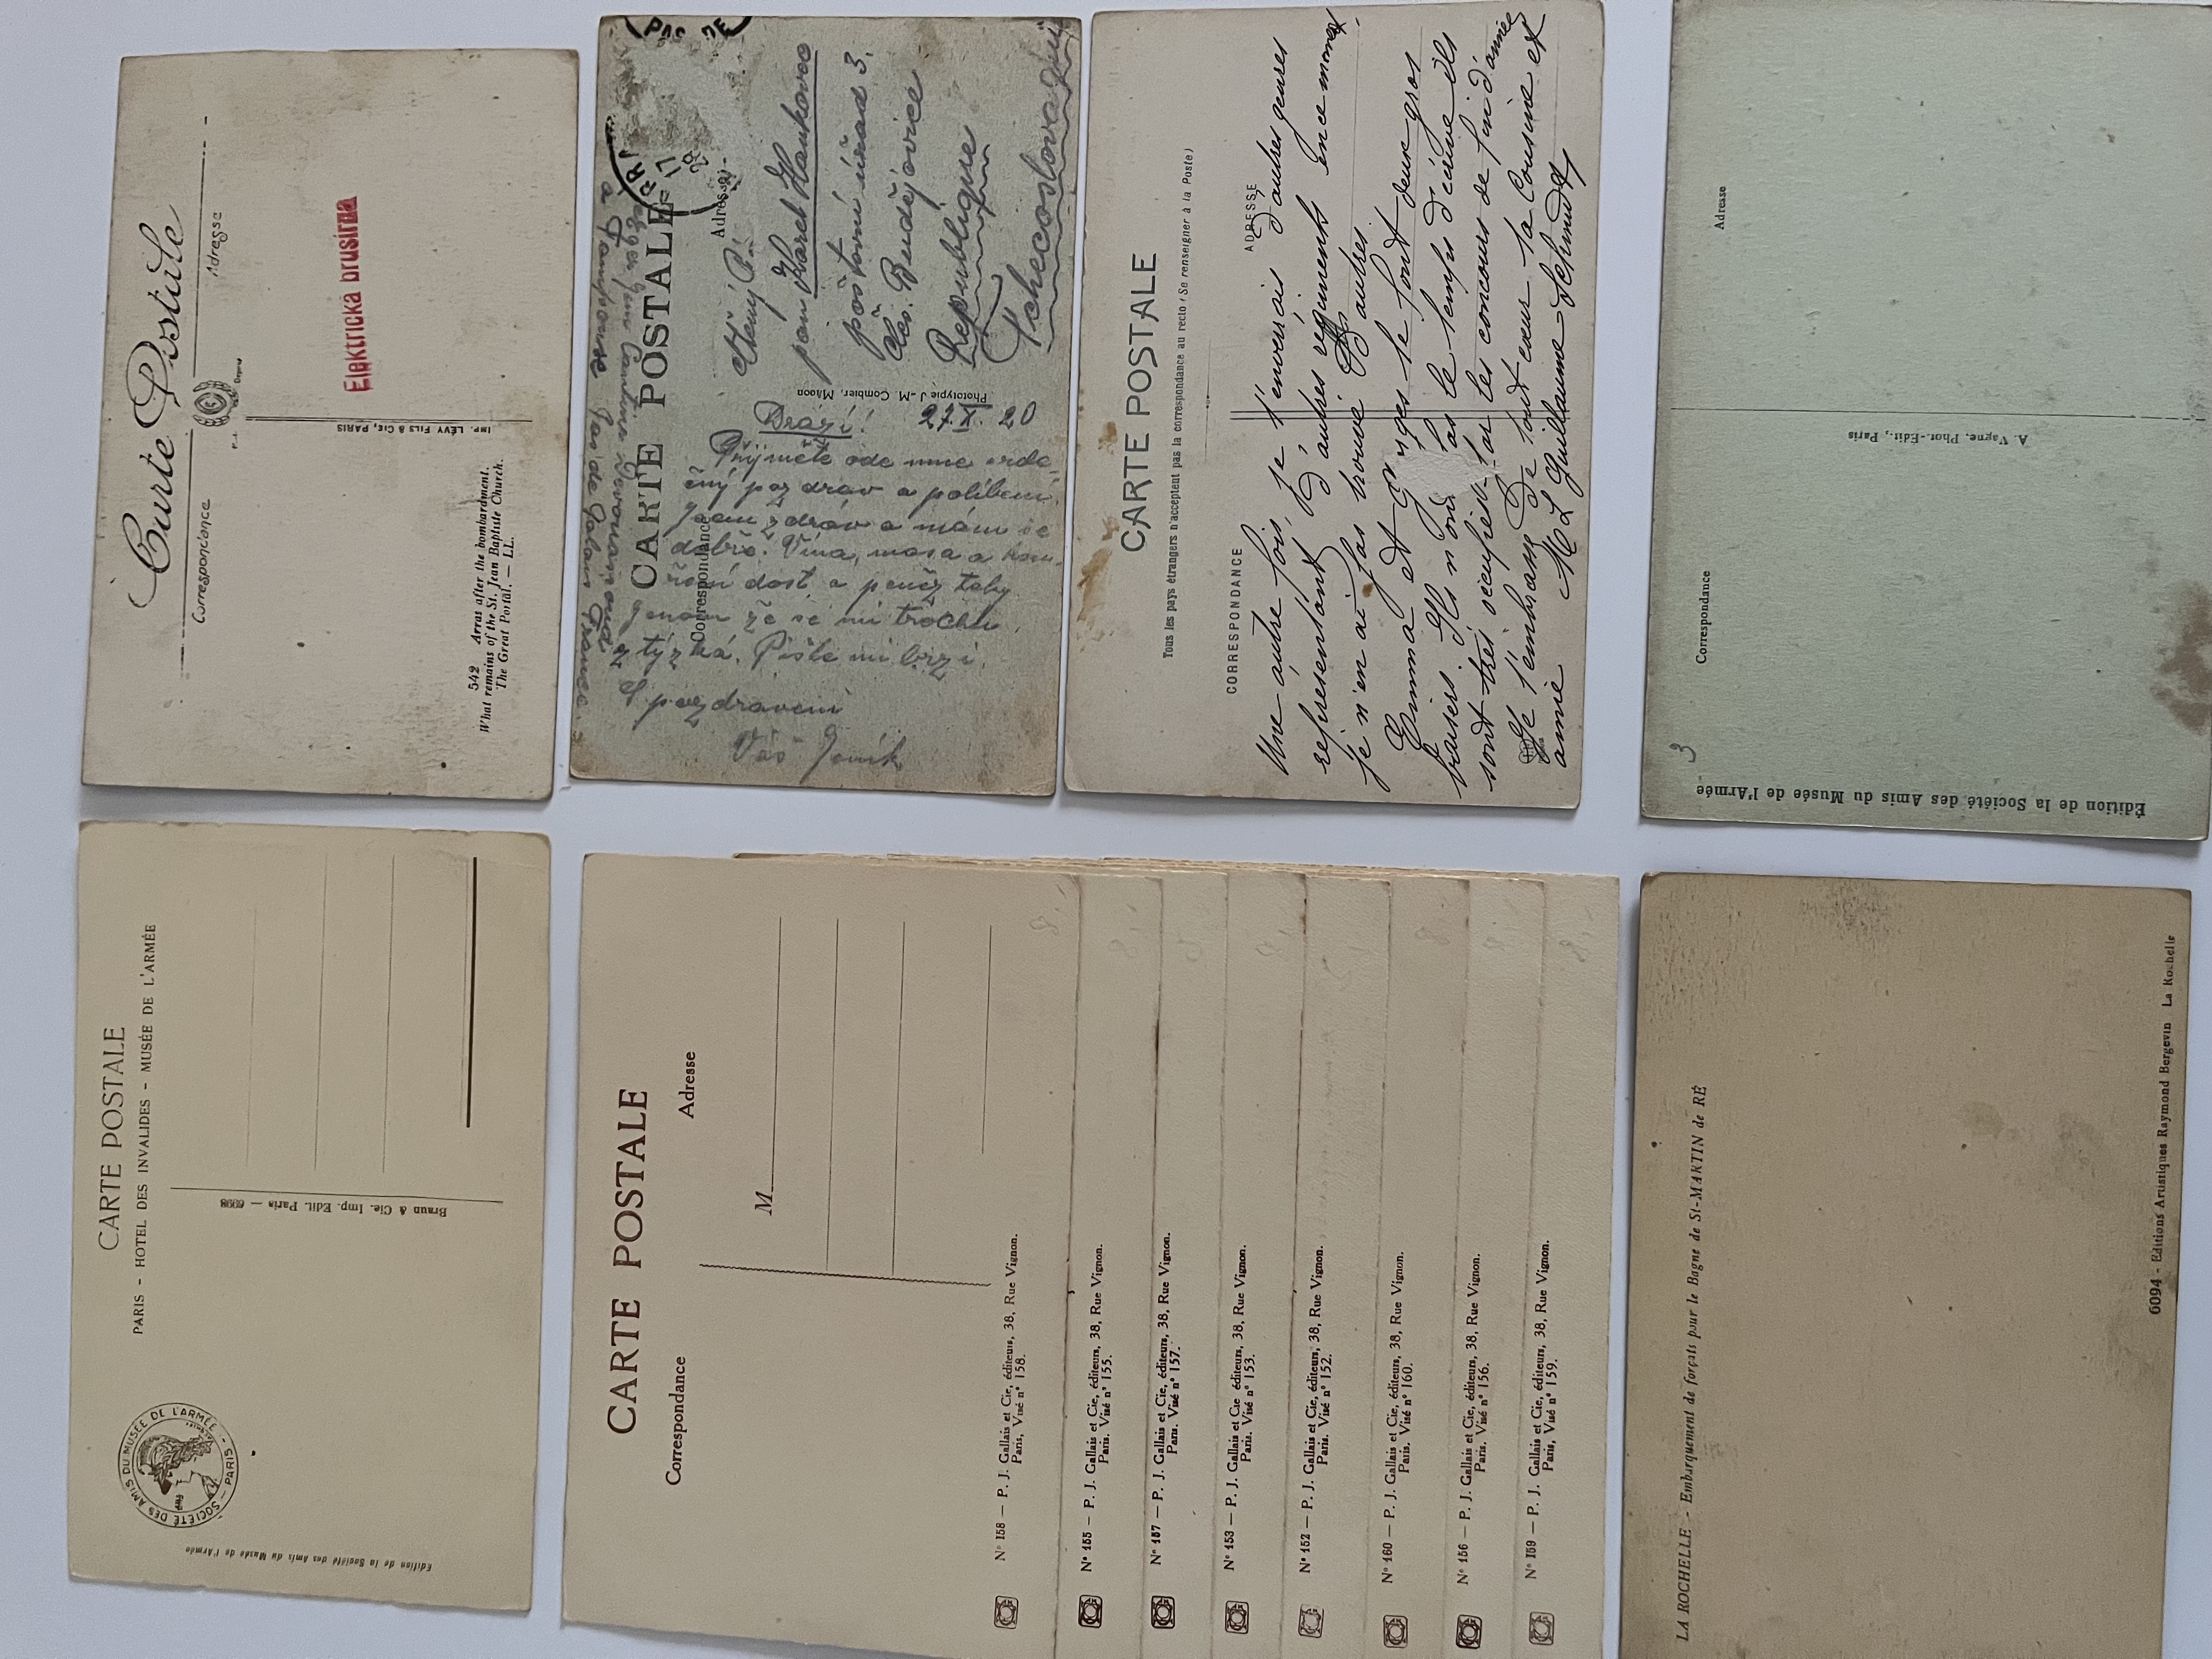 Carte Postale
Correspondance
Adresse
Elektrická brusírna
IMP. LÉVY FILS & CIE, PARIS
542 Arras after the bombardment.
What remains of the St. Jean Baptiste Church.
The Great Portal. — LL.
CARTE POSTALE
Correspondance
Adresse
Phototypie J.-M. Combier, Mâcon
pan Karel
poštovní úřad 3.
Čes. Budějovice
Republique
Tchecoslovaque
Drazí!
27.X.20
Přijměte ode mne srde-
čný pozdrav a políbení.
Jsem zdráv a mám se
dobře. Vína, masa a
dost a peněz taky
jenom že se mi trochu
stýzká. Pište mi brzi.
S pozdravem
Váš Jeník
CARTE POSTALE
Tous les pays étrangers n'acceptent pas la correspondance au recto (Se renseigner à la Poste)
CORRESPONDANCE
ADRESSE
Une autre fois, je t'enverrais d'autres genres
représentant d'autres régiments en ce moment
je n'en ai pas trouvé d'autres.
Emma et Georges te font deux gros
baisers. Ils n'ont pas le temps d'écrire ils
sont très occupés par les concours de fin d'année
Je t'embrasse de tout cœur ta Cousine et
amie M L Guillaume-Schmidt
Correspondance
Adresse
A. Vagne, Phot.-Edit., Paris
3
Édition de la Société des Amis du Musée de l'Armée
CARTE POSTALE
PARIS - HOTEL DES INVALIDES - MUSÉE DE L'ARMÉE
SOCIÉTÉ DES AMIS DU MUSÉE DE L'ARMÉE - PARIS -
Braun & Cie. Imp. Edit. Paris — 6098
Edition de la Société des Amis du Musée de l'Armée
CARTE POSTALE
Correspondance
Adresse
M
N° 158 — P. J. Gallais et Cie, éditeurs, 38, Rue Vignon.
Paris, Visé n° 158.
N° 155 — P. J. Gallais et Cie, éditeurs, 38, Rue Vignon.
Paris. Visé n° 155.
N° 157 — P. J. Gallais et Cie, éditeurs, 38, Rue Vignon.
Paris. Visé n° 157.
N° 153 — P. J. Gallais et Cie éditeurs, 38, Rue Vignon.
Paris. Visé n° 153.
N° 152 — P. J. Gallais et Cie, éditeurs, 38, Rue Vignon.
Paris. Visé n° 152.
N° 160 — P. J. Gallais et Cie, éditeurs, 38, Rue Vignon.
Paris. Visé n° 160.
N° 156 — P. J. Gallais et Cie, éditeurs, 38, Rue Vignon.
Paris. Visé n° 156.
N° 159 — P. J. Gallais et Cie, éditeurs, 38, Rue Vignon.
Paris, Visé n° 159.
LA ROCHELLE - Embarquement de forçats pour le Bagne de St-MARTIN de RÉ
6094 - Editions Artistiques Raymond Bergevin La Rochelle